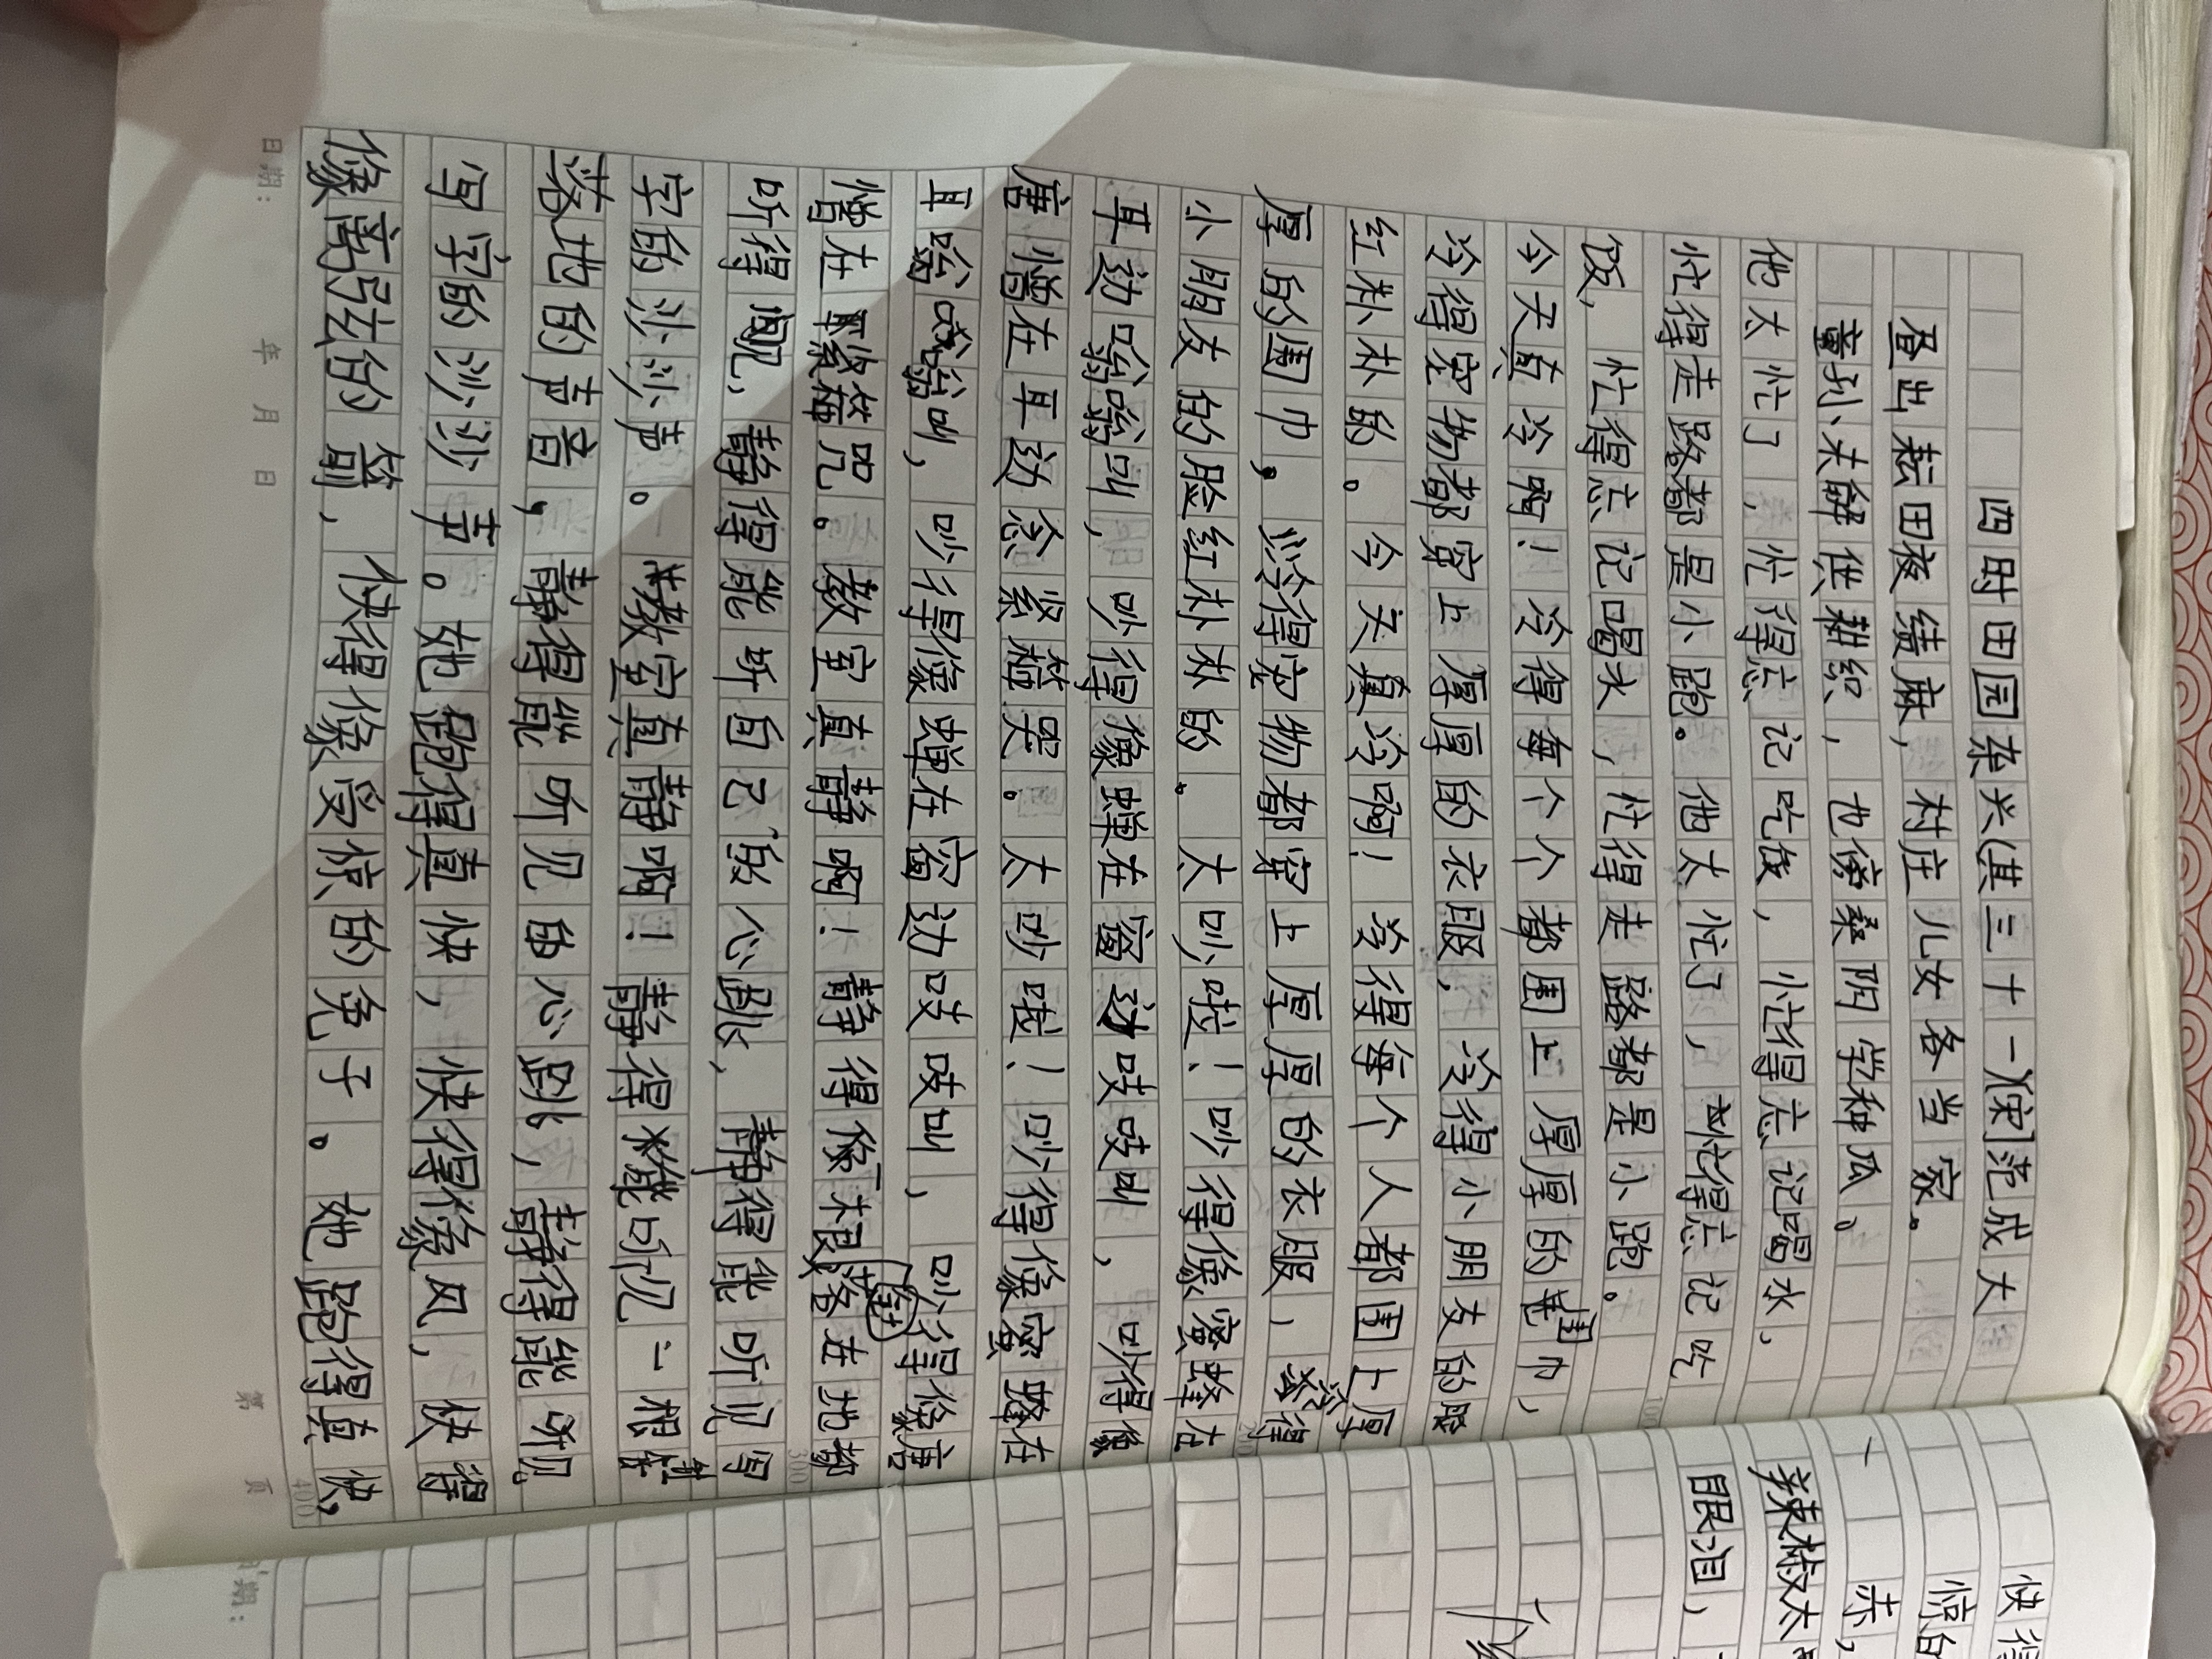 四时田园杂兴(其三十一)[宋]范成大
昼出耘田夜绩麻，村庄儿女各当家。
童孙未解供耕织，也傍桑阴学种瓜。
他太忙了，忙得忘记吃饭，忙得忘记喝水，
忙得走路都是小跑。他太忙了，忙得忘记吃
饭，忙得忘记喝水，忙得走路都是小跑。
今天真冷啊！冷得每个个都围上厚厚的围巾，
冷得宠物都穿上厚厚的衣服，冷得小朋友的脸
红朴朴的。今天真冷啊！冷得每个人都围上厚
厚的围巾，冷得宠物都穿上厚厚的衣服，冷得
小朋友的脸红朴朴的。太吵啦！吵得像蜜蜂在
耳边嗡嗡叫，吵得像蝉在窗边吱吱叫，吵得像
唐僧在耳边念紧箍咒。太吵啦！吵得像蜜蜂在
耳嗡嗡叫，吵得像蝉在窗边吱吱叫，吵得像唐
僧在紧箍咒。教室真静啊！静得像一根落在地都
针
听得见，静得能听自己的心跳，静得能听见写
字的沙沙声。教室真静啊！静得能听见一根针
落地的声音，静得能听见的心跳，静得能听见
写字的沙沙声。她跑得真快，快得像风，快得
像离弦的箭，快得像受惊的兔子。她跑得真快，
日期： 年 月 日
第 页
100
200
300
400
快得
惊的
赤，
辣椒太
眼泪，